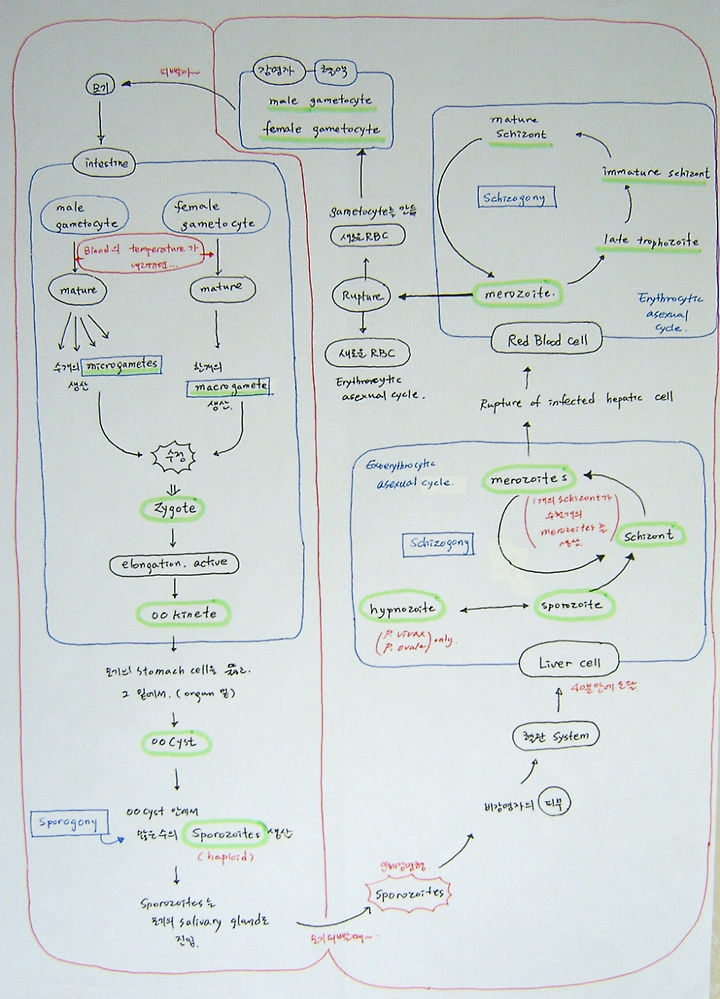 감염자
혈액
male gametocyte
female gametocyte
모기
intestine
male
gametocyte
female
gametocyte
Blood의 temperature가
내려가면...
mature
mature
수개의 microgametes
생산
한개의
macrogamete
생산.
수정
Zygote
elongation. active
ookinete
모기의 stomach cell을 뚫고.
그 옆에서. (organ 옆)
oocyst
Sporogony
oocyst 안에서
많은수의 Sporozoites 생산
(haploid)
Sporozoites는
모기의 salivary gland로
진입.
Sporozoites
비감염자의 피부
혈관 System
40분안에 도달.
Liver cell
hypnozoite
(P. vivax
P. ovale) only.
sporozoite
Schizont
Schizogony
merozoites
(1개의 schizont가
수천개의
merozoites를
생산)
Exoerythrocytic
asexual cycle.
Rupture of infected hepatic cell
Red Blood cell
merozoite.
late trophozoite
immature schizont
mature
Schizont
Schizogony
Erythrocytic
asexual
cycle.
Rupture
새로운 RBC
gametocyte를 만듦
새로운 RBC
Erythrocytic
asexual cycle.